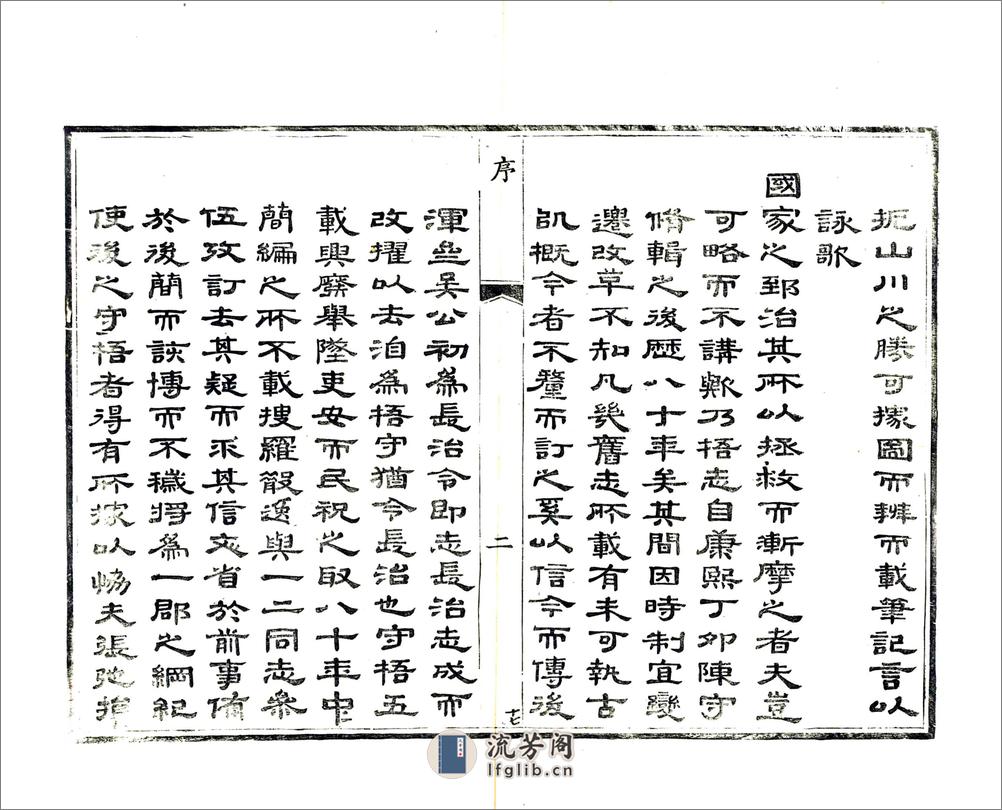 扼山川之勝可據圖而辨而載筆記言以
詠歌
國家之郅治其所以拯救而漸摩之者夫豈
可略而不講歟乃梧志自康熙丁卯陳守
脩輯之後歷八十年矣其間因時制宜變
遷改革不知凡幾舊志所載有未可執古
訊概今者不釐而訂之奚以信今而傳後
序
二
七
渾𡵨吳公初為長治令即志長治志成而
改擢以去洎為梧守猶令長治也守梧五
載興廢舉墜吏安而民祝之取八十年中
簡編之所不載搜羅散逸與一二同志參
伍攷訂去其疑而求其信文省於前事備
於後簡而該博而不穢將為一郡之綱紀
使後之守梧者得有所據以恊夫張弛
流芳阁
lfglib.cn